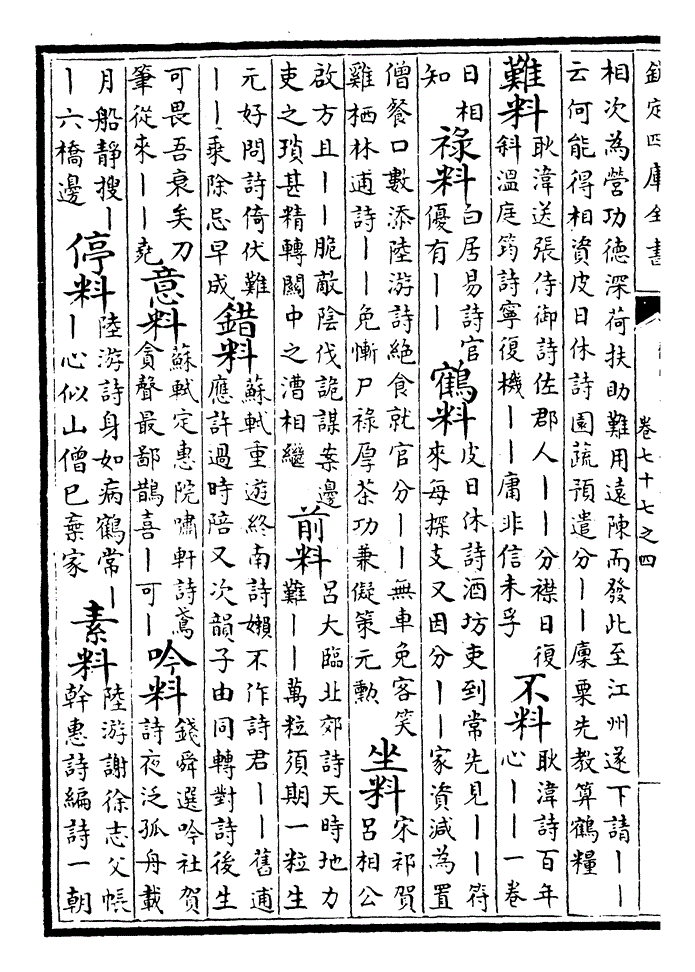 欽定四庫全書
卷七十七之四
相次為營功德深荷扶助難用遠陳而發此至江州遂下請丨丨
云何能得相資皮日休詩園蔬預遣分丨丨廩粟先教算鶴糧
難料
耿湋送張侍御詩佐郡人丨丨分襟日復
斜溫庭筠詩寧復機丨丨庸非信未孚
不料
耿湋詩百年
心丨丨一卷
日相
知
祿料
白居易詩官
優有丨丨
鶴料
皮日休詩酒坊吏到常先見丨丨符
來每探支又因分丨丨家資減為置
僧餐口數添陸游詩絕食就官分丨丨無車免客笑
雞栖林逋詩丨丨免慚尸祿厚茶功兼儗策元勲
坐料
宋祁賀
呂相公
啟方且丨丨脆敵陰伐詭謀案邊
吏之瑣甚精轉關中之漕相繼
前料
呂大臨北郊詩天時地力
難丨丨萬粒須期一粒生
元好問詩倚伏難
丨丨乘除忌早成
錯料
蘇軾重遊終南詩嬾不作詩君丨丨舊逋
應許過時陪又次韻子由同轉對詩後生
可畏吾衰矣刀
筆從來丨丨堯
意料
蘇軾定惠院嘯軒詩鳶
貪聲最鄙鵲喜丨可丨
吟料
錢舜選吟社賀
詩夜泛孤舟載
月船靜搜丨
丨六橋邊
停料
陸游詩身如病鶴常丨
丨心似山僧已棄家
素料
陸游謝徐志父帳
幹惠詩編詩一朝